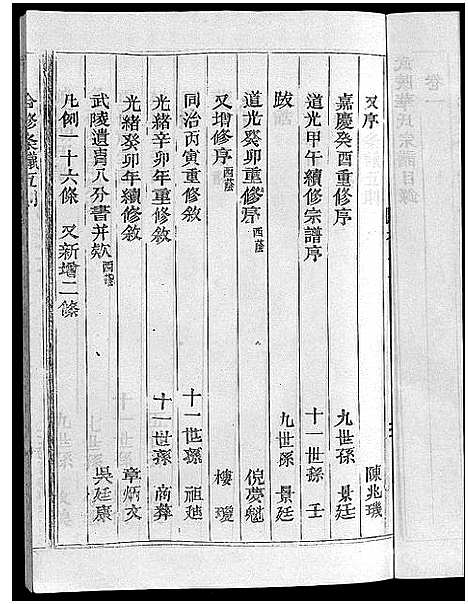 又序 陳兆璣
嘉慶癸酉重修序 九世孫 景廷
道光甲午續修宗譜序 十一世孫 王
跋 九世孫 景廷
道光癸卯重修序西蔭 倪夢魁
又增修序西蔭 樓璦
同治丙寅重修敘 十一世孫 祖
光緒辛卯年重修敘 十一世孫 商彝
光緒癸卯年續修敘 章炳文
武陵遺胄八分書并欵 吳廷康
凡例一十六條 又新增二條